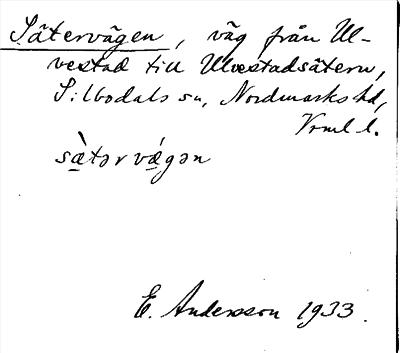 Sätervägen, väg från Ul-
vestad till Ulvestadsätern,
Silbodals sn, Nordmarks hd,
Vrml l.
sæ̀tər vǽgən
E. Andersson 1933.